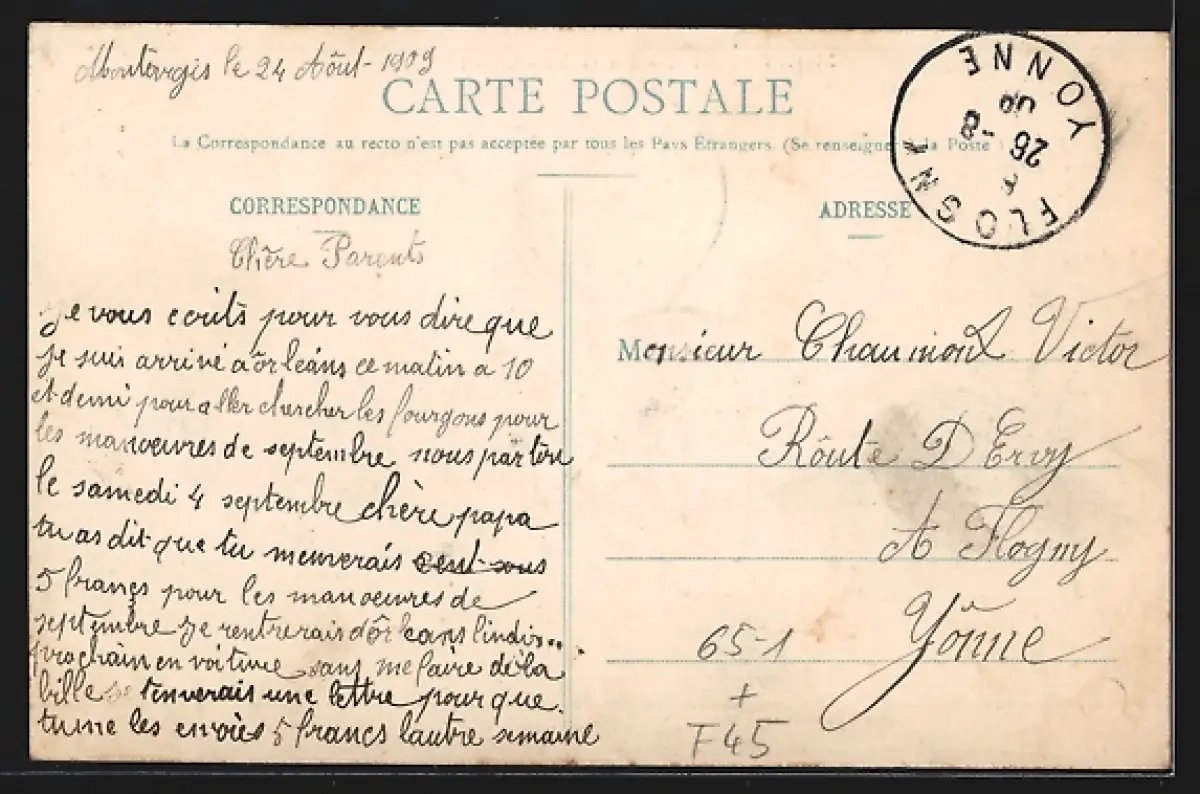 Montargis le 24 Aôut - 1909
CARTE POSTALE
La Correspondance au recto n'est pas acceptée par tous les Pays Étrangers. (Se renseigner à la Poste
CORRESPONDANCE
ADRESSE
YONNE
26 -8
09
FLOGNY
Chère Parents
Je vous écrits pour vous dire que
je suis arrivé a örleans ce matin a 10
et demi pour aller chercher les fourgons pour
les manoeuvres de septembre nous partön
le samedi 4 septembre chère papa
tu as dit que tu menverais cent sous
5 françs pour les manoeuvres de
septembre je rentrerais d'örleans lindis..
prochain en voiture sans me faire de la
bille je tenverais une lettre pour que
tu me les envoiès 5 francs lautre semaine
Monsieur Chaumont Victor
Rôute D Ervy
A Flogny
Yonne
65-1
+
F45